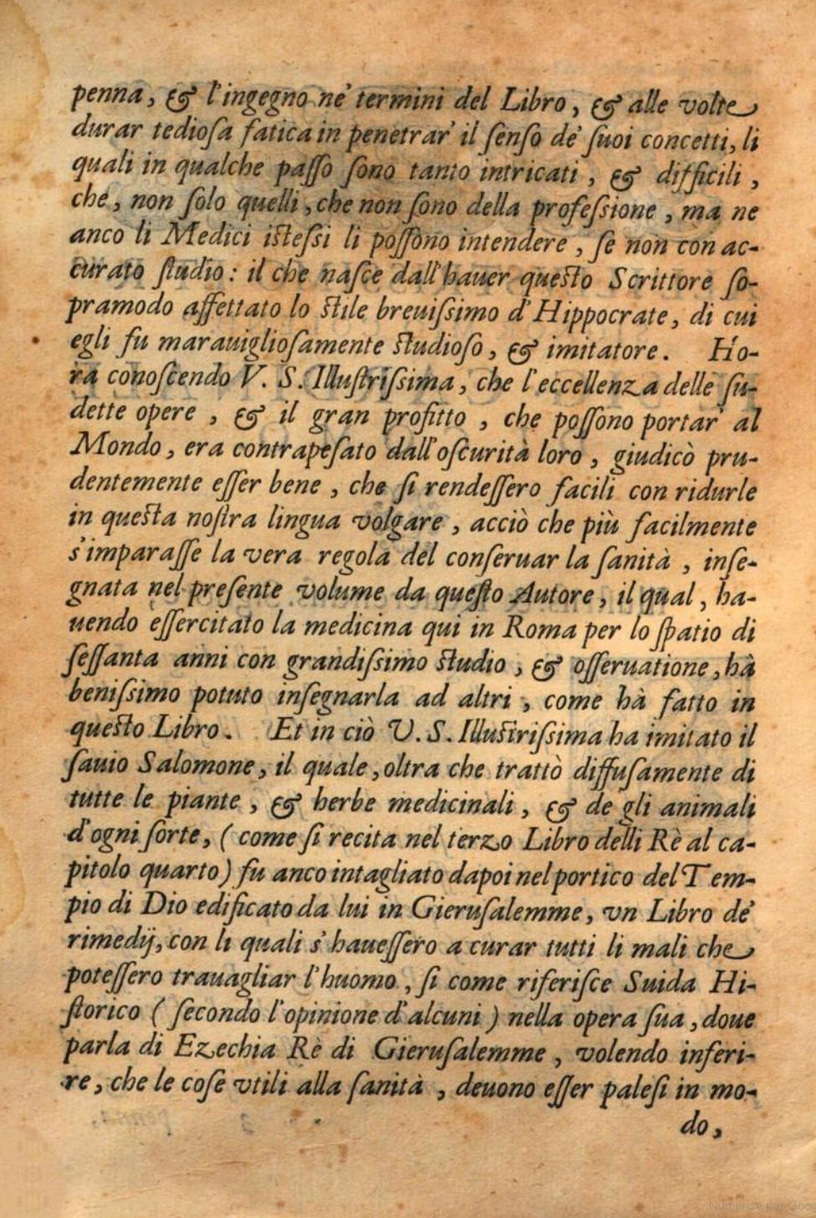 penna, & l'ingegno ne' termini del Libro, & alle volte
durar tedioſa fatica in penetrar' il ſenſo de' ſuoi concetti, li
quali in qualche paſſo ſono tanto intricati, & difficili,
che, non ſolo quelli, che non ſono della profeſsione, ma ne
anco li Medici isteſsi li poſſono intendere, ſe non con ac-
curato ſtudio: il che naſce dall'hauer questo Scrittore ſo-
pramodo affettato lo stile breuiſsimo d'Hippocrate, di cui
egli fu marauiglioſamente studioſo, & imitatore. Ho-
ra conoſcendo V. S. Illuſtriſsima, che l'eccellenza delle ſu-
dette opere, & il gran profitto, che poſſono portar' al
Mondo, era contrapeſato dall'oſcurità loro, giudicò pru-
dentemente eſſer bene, che ſi rendeſſero facili con ridurle
in questa noſtra lingua volgare, acciò che più facilmente
s'imparaſſe la vera regola del conſeruar la ſanità, inſe-
gnata nel preſente volume da queſto Autore, il qual, ha-
uendo eſſercitato la medicina qui in Roma per lo ſpatio di
ſeſſanta anni con grandiſsimo studio, & oſſeruatione, hà
beniſsimo potuto inſegnarla ad altri, come hà fatto in
questo Libro. Et in ciò V. S. Illustriſsima ha imitato il
ſauio Salomone, il quale, oltra che trattò diffuſamente di
tutte le piante, & herbe medicinali, & de gli animali
d'ogni ſorte, (come ſi recita nel terzo Libro delli Rè al ca-
pitolo quarto) fu anco intagliato dapoi nel portico del Tem-
pio di Dio edificato da lui in Gieruſalemme, vn Libro de'
rimedij, con li quali s'haueſſero a curar tutti li mali che
poteſſero trauagliar l'huomo, ſi come riferiſce Suida Hi-
ſtorico (ſecondo l'opinione d'alcuni) nella opera ſua, doue
parla di Ezechia Rè di Gieruſalemme, volendo inferi-
re, che le coſe vtili alla ſanità, deuono eſſer paleſi in mo-
do,